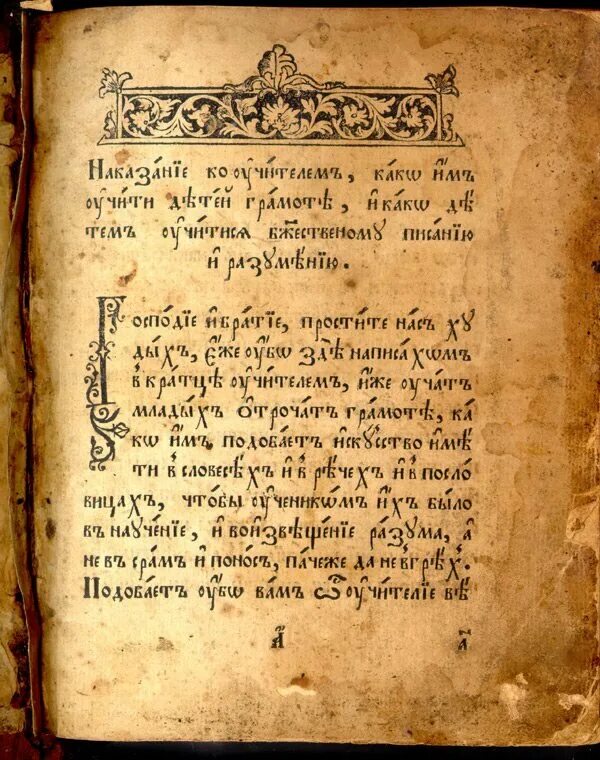 Наказа́нїе ко ᲂу҆чи́телемъ, ка́кѡ и҆̀мъ
ᲂу҆чи́ти дѣте́й гра́мотѣ, и҆ ка́кѡ дѣ́
темъ ᲂу҆чи́тисѧ бж҃ественому писа́нїю
и҆ разумѣ́нїю.
Господїе и҆ бра́тїе, прости́те на́съ ху
ды́хъ, є҆́же ᲂу҆́бѡ здѣ̀ написа́хѡмъ
в кра́тцѣ ᲂу҆чи́телемъ, и҆̀же ᲂу҆ча́тъ
млады́хъ ѻ҆троча́тъ гра́мотѣ, ка́
кѡ и҆̀мъ подоба́етъ и҆ску́ство и҆мѣ́
ти в словесѣ́хъ и҆ в рѣ́чех и҆ в посло́
вицахъ, что́бы ᲂу҆ченикѡ́мъ и҆́хъ бы́ло
въ науче́нїе, и҆ во и҆звѣще́нїе ра́зума, а҆
не въ сра́мъ и҆ поно́съ, па́чеже да не в грѣ́х.
Подоба́етъ ᲂу҆́бѡ ва́мъ ѽ ᲂу҆чи́телїе вѣ́
а҃
а҃